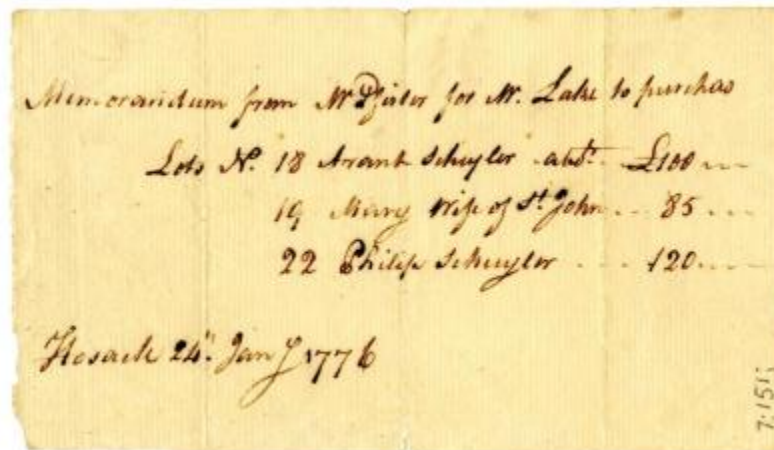 Memorandum from Mr Pfister for Mr. Lake to purchas
Lots No. 18 Arant Schuyler abt. £100
19 Mary Wife of St. John 85
22 Philip Schuyler 120
Hosack 24th. Jany 1776
7:151